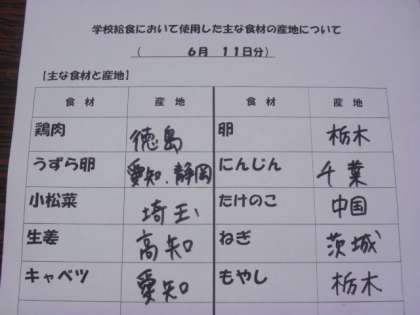 学校給食において使用した主な食材の産地について
( 6月 11日分)
【主な食材と産地】
食材 産地 食材 産地
鶏肉 徳島 卵 栃木
うずら卵 愛知、静岡 にんじん 千葉
小松菜 埼玉 たけのこ 中国
生姜 高知 ねぎ 茨城
キャベツ 愛知 もやし 栃木